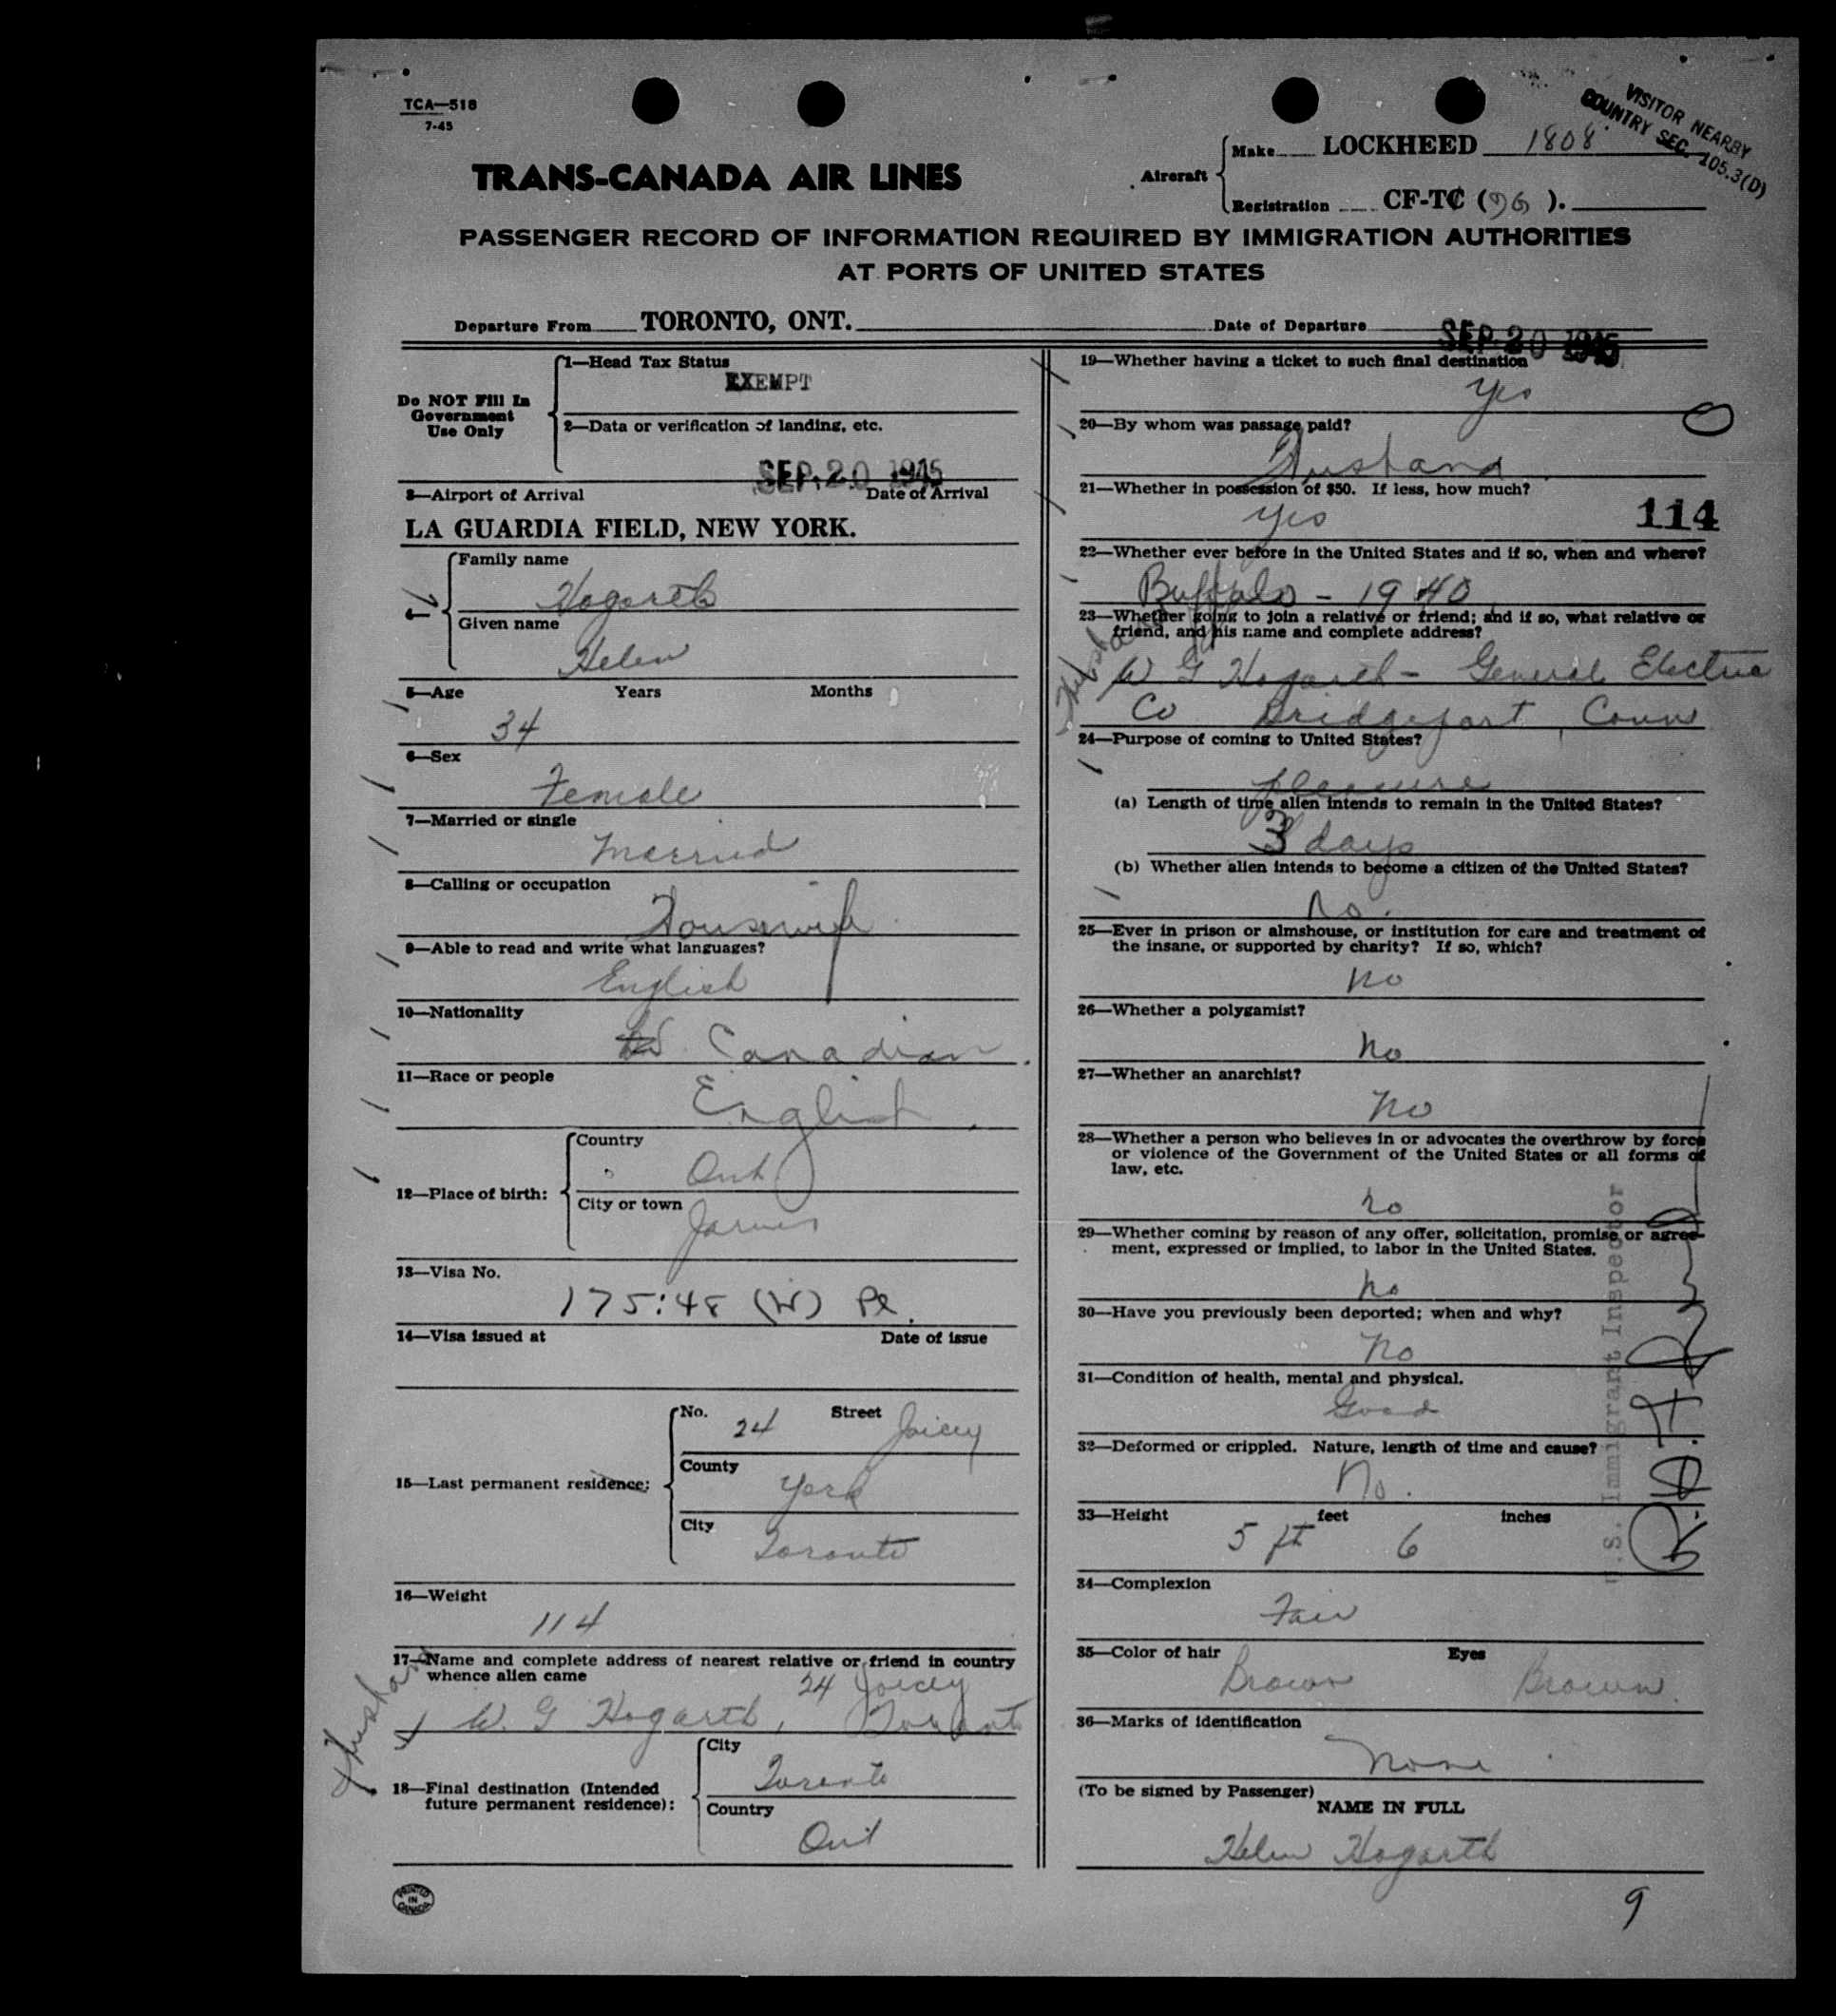 TCA—518
7-45
VISITOR NEARBY
COUNTRY SEC. 105.3(D)
TRANS-CANADA AIR LINES
Aircraft
Make LOCKHEED 1808
Registration CF-TC (96).
PASSENGER RECORD OF INFORMATION REQUIRED BY IMMIGRATION AUTHORITIES
AT PORTS OF UNITED STATES
Departure From TORONTO, ONT.
Date of Departure SEP 20 1945
Do NOT Fill In
Government
Use Only
1—Head Tax Status
EXEMPT
2—Data or verification of landing, etc.
SEP. 20 1945
3—Airport of Arrival Date of Arrival
LA GUARDIA FIELD, NEW YORK.
4
Family name
Hogarth
Given name
Helen
5—Age Years Months
34
6—Sex
Female
7—Married or single
Married
8—Calling or occupation
Housewife
9—Able to read and write what languages?
English
10—Nationality
Canadian
11—Race or people
English
12—Place of birth:
Country
Ont
City or town
Jarvis
13—Visa No.
175:48 (W) Pl.
14—Visa issued at Date of issue
15—Last permanent residence:
No. 24 Street Joicey
County
York
City
Toronto
16—Weight
114
17—Name and complete address of nearest relative or friend in country
whence alien came
24 Joicey
Husband
W. G Hogarth, Toronto
18—Final destination (Intended
future permanent residence):
City
Toronto
Country
Ont
PRINTED
IN
CANADA
19—Whether having a ticket to such final destination
Yes
0
20—By whom was passage paid?
Husband
21—Whether in possession of $50. If less, how much?
Yes
114
22—Whether ever before in the United States and if so, when and where?
Buffalo - 1940
23—Whether going to join a relative or friend; and if so, what relative or
friend, and his name and complete address?
Husband
W G Hogarth - General Electric
Co Bridgeport, Conn
24—Purpose of coming to United States?
pleasure
(a) Length of time alien intends to remain in the United States?
3 days
(b) Whether alien intends to become a citizen of the United States?
No.
25—Ever in prison or almshouse, or institution for care and treatment of
the insane, or supported by charity? If so, which?
no
26—Whether a polygamist?
no
27—Whether an anarchist?
no
28—Whether a person who believes in or advocates the overthrow by force
or violence of the Government of the United States or all forms of
law, etc.
no
29—Whether coming by reason of any offer, solicitation, promise or agree-
ment, expressed or implied, to labor in the United States.
no
30—Have you previously been deported; when and why?
no
31—Condition of health, mental and physical.
Good
32—Deformed or crippled. Nature, length of time and cause?
No.
33—Height feet inches
5 ft 6
U.S. Immigrant Inspector
34—Complexion
Fair
35—Color of hair Eyes
Brown Brown
36—Marks of identification
None
(To be signed by Passenger)
NAME IN FULL
Helen Hogarth
9